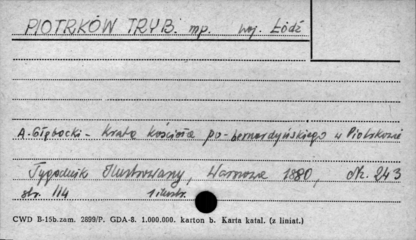 PIOTRKÓW TRYB. mp. woj. Łódź
A. Głębocki - Krata kościoła po-bernardyńskiego w Piotrkowie
Tygodnik Ilustrowany, Warszawa 1880, Nr. 243
str. 114 1 ilustr.
CWD B-15b. zam. 2899/P. GDA-8. 1.000.000. karton b. Karta katal. (z liniat.)